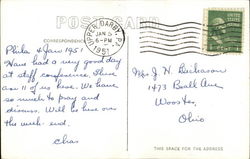 POST CARD
CORRESPONDENCE
UPPER DARBY, PA.
JAN 5
6-PM
1951
Phila 4 Jan 1951
Have had a very good day
at staff conference. There
are 11 of us here. We have
so much to pray and
discuss. Will be here over
the week-end.
Chas
Mrs J. H. Buchanan
1473 Beall Ave
Wooster,
Ohio
THIS SPACE FOR THE ADDRESS